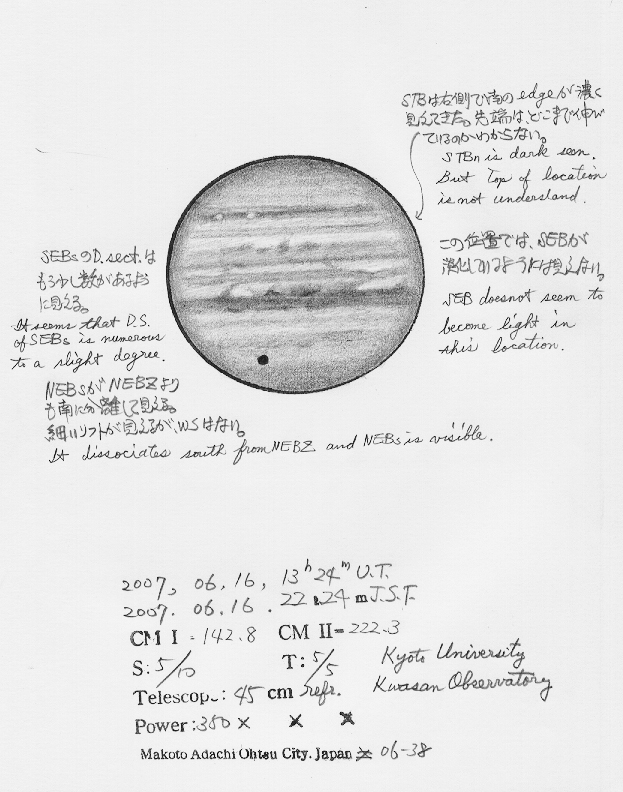 STBは右側で南のedgeが濃く
見えてきた。先端は、どこまで伸び
ているのかわからない。
STBn is dark seen.
But Top of location
is not understand.
この位置では、SEBが
淡化しているようには見えない。
SEB doesnot seem to
become light in
this location.
SEBsのD.sect.は
もう少し数があるよう
に見える。
It seems that D.S.
of SEBs is numerous
to a slight degree.
NEBsがNEBZより
も南に分離して見える。
細いリフトが見えるが、W.S.はない。
It dissociates south from NEBZ and NEBs is visible.
2007, 06, 16, 13h 24m U.T.
2007. 06. 16. 22h 24m J.S.T.
CM I = 142.8 CM II= 222.3
S: 5/10 T: 5/5 Kyoto University
Telescope: 45 cm refr. Kwasan Observatory
Power: 350 × × ×
Makoto Adachi Ohtsu City. Japan 06-38